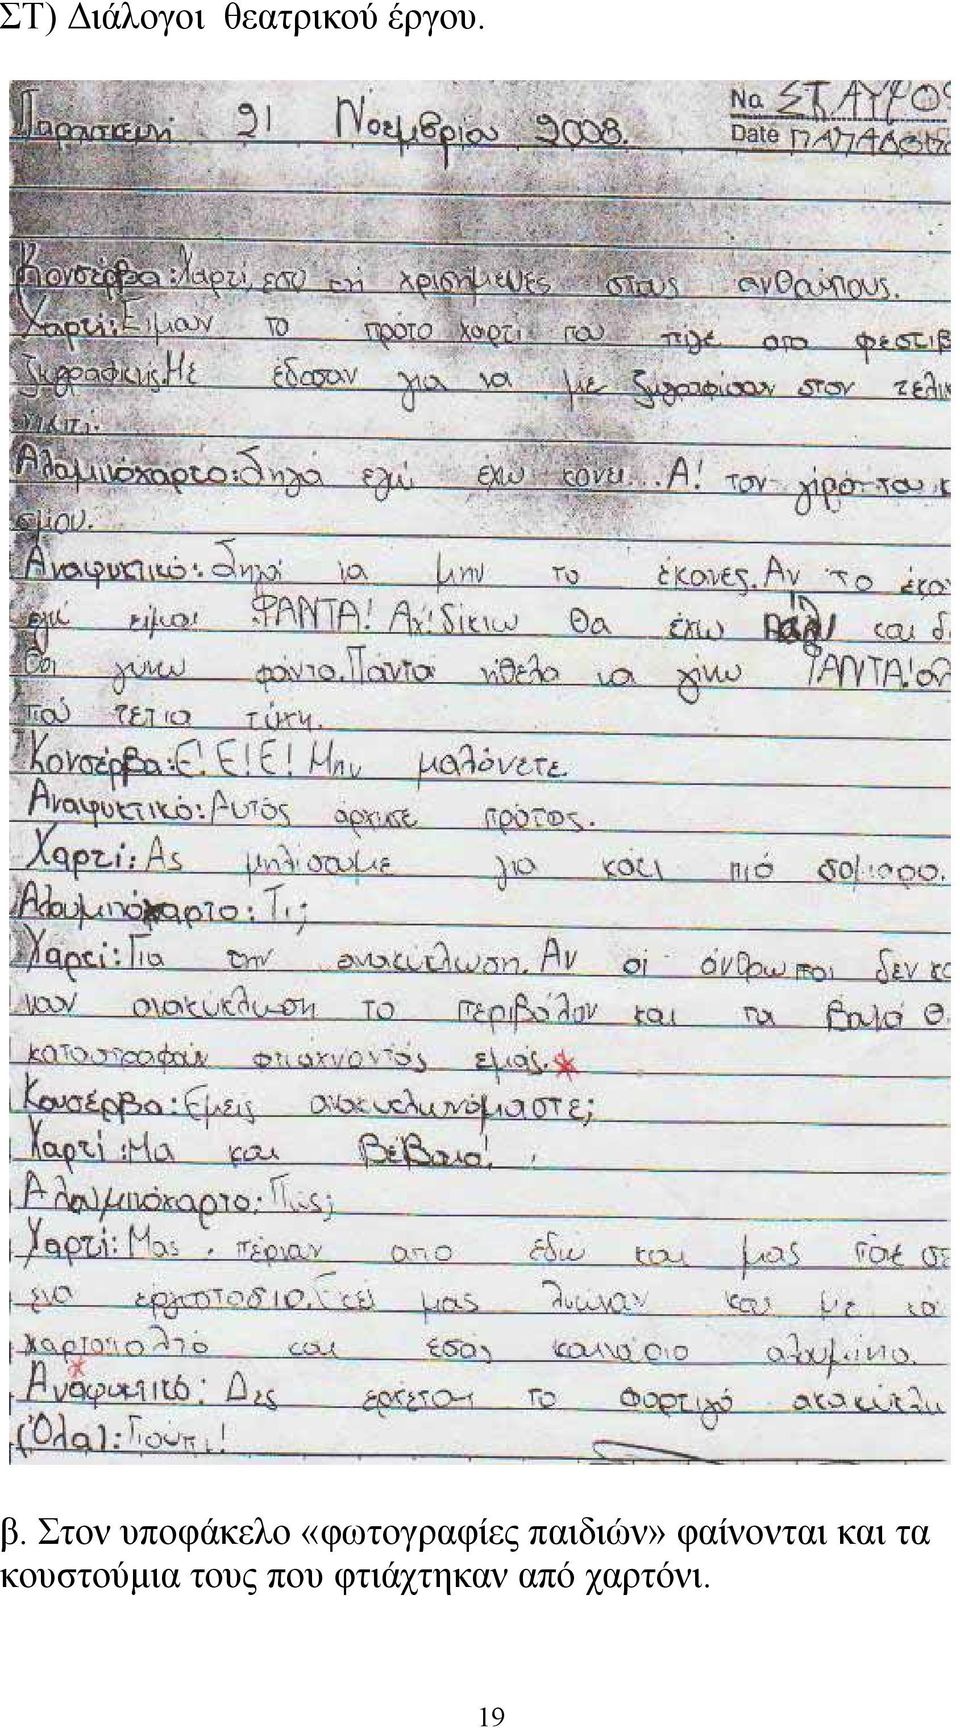 ΣΤ) Διάλογοι θεατρικού έργου.
Νο. ΣΤΑΥΡΟΣ
Παρασκευή 21 Νοεμβρίου 2008.
Date ΠΑΠΑΔΟΠΟ
Κονσέρβα: Χαρτί, εσύ χρισήμεψες στους ανθρώπους.
Χαρτί: Είμαν το πρότο χαρτί που πιγέ στο φεστιβ
ζωγραφικής. Με έδοσαν για να με ζωγραφίσαν στον τελικ
Αλουμινόχαρτο: Δηλά εγώ έχω κάνει... Α! τον γίρο του κ
σμου.
Αναψυκτικό: Δηλά να μην το έκανες. Αν το έκα
εγώ είμαι ΦΑΝΤΑ! Αχ! Δίκιω θα έχω πάλι και δ
θα γίνω φάντα. Πάντα ήθελα να γίνω ΦΑΝΤΑ!
πού τέτια τύχη.
Κονσέρβα: Ε! Ε! Ε! Μην μαλόνετε.
Αναψυκτικό: Αυτός άρχισε πρότος.
Χαρτί: Ας μηλίσουμε για κάτι πιό σοβαρο.
Αλουμινόχαρτο: Τι;
Χαρτί: Για την ανακύκλωση. Αν οί άνθρωποι δεν κά
ναν ανακύκλωση το περιβάλον και τα βουνά θ
καταστραφάν φτιάχνοντάς εμάς.*
Κονσέρβα: Εμείς ανακυκλωνόμαστε;
Χαρτί: Μα και βέβαια!
Αλουμινόχαρτο: Πώς;
Χαρτί: Μας πέριαν απο εδώ και μας πάε σε
ένα εργοστάσιο. Εκεί μας λιώναν και με
χαρτοπολτό και εσάς καινούριο αλουμίνιο.
*
Αναψυκτικό: Δες ερχεται το φορτιγό ανακύκλω
(Όλα): Γιούπι!
β. Στον υποφάκελο «φωτογραφίες παιδιών» φαίνονται και τα
κουστούμια τους που φτιάχτηκαν από χαρτόνι.
19